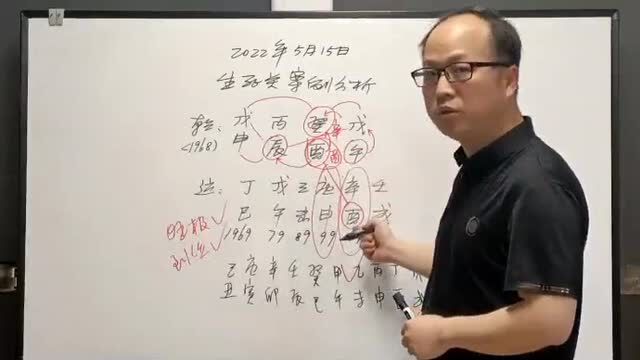 2022年5月15日
生死类案例分析
戊 丙 癸 戊
(1968) 申 辰 酉 午
运: 丁 戊 己 庚 辛 壬
巳 午 未 申 酉 戌
1969 79 89 99
旺极✓
己 庚 辛 壬 癸 甲 乙 丙 丁
丑 寅 卯 辰 巳 午 未 申